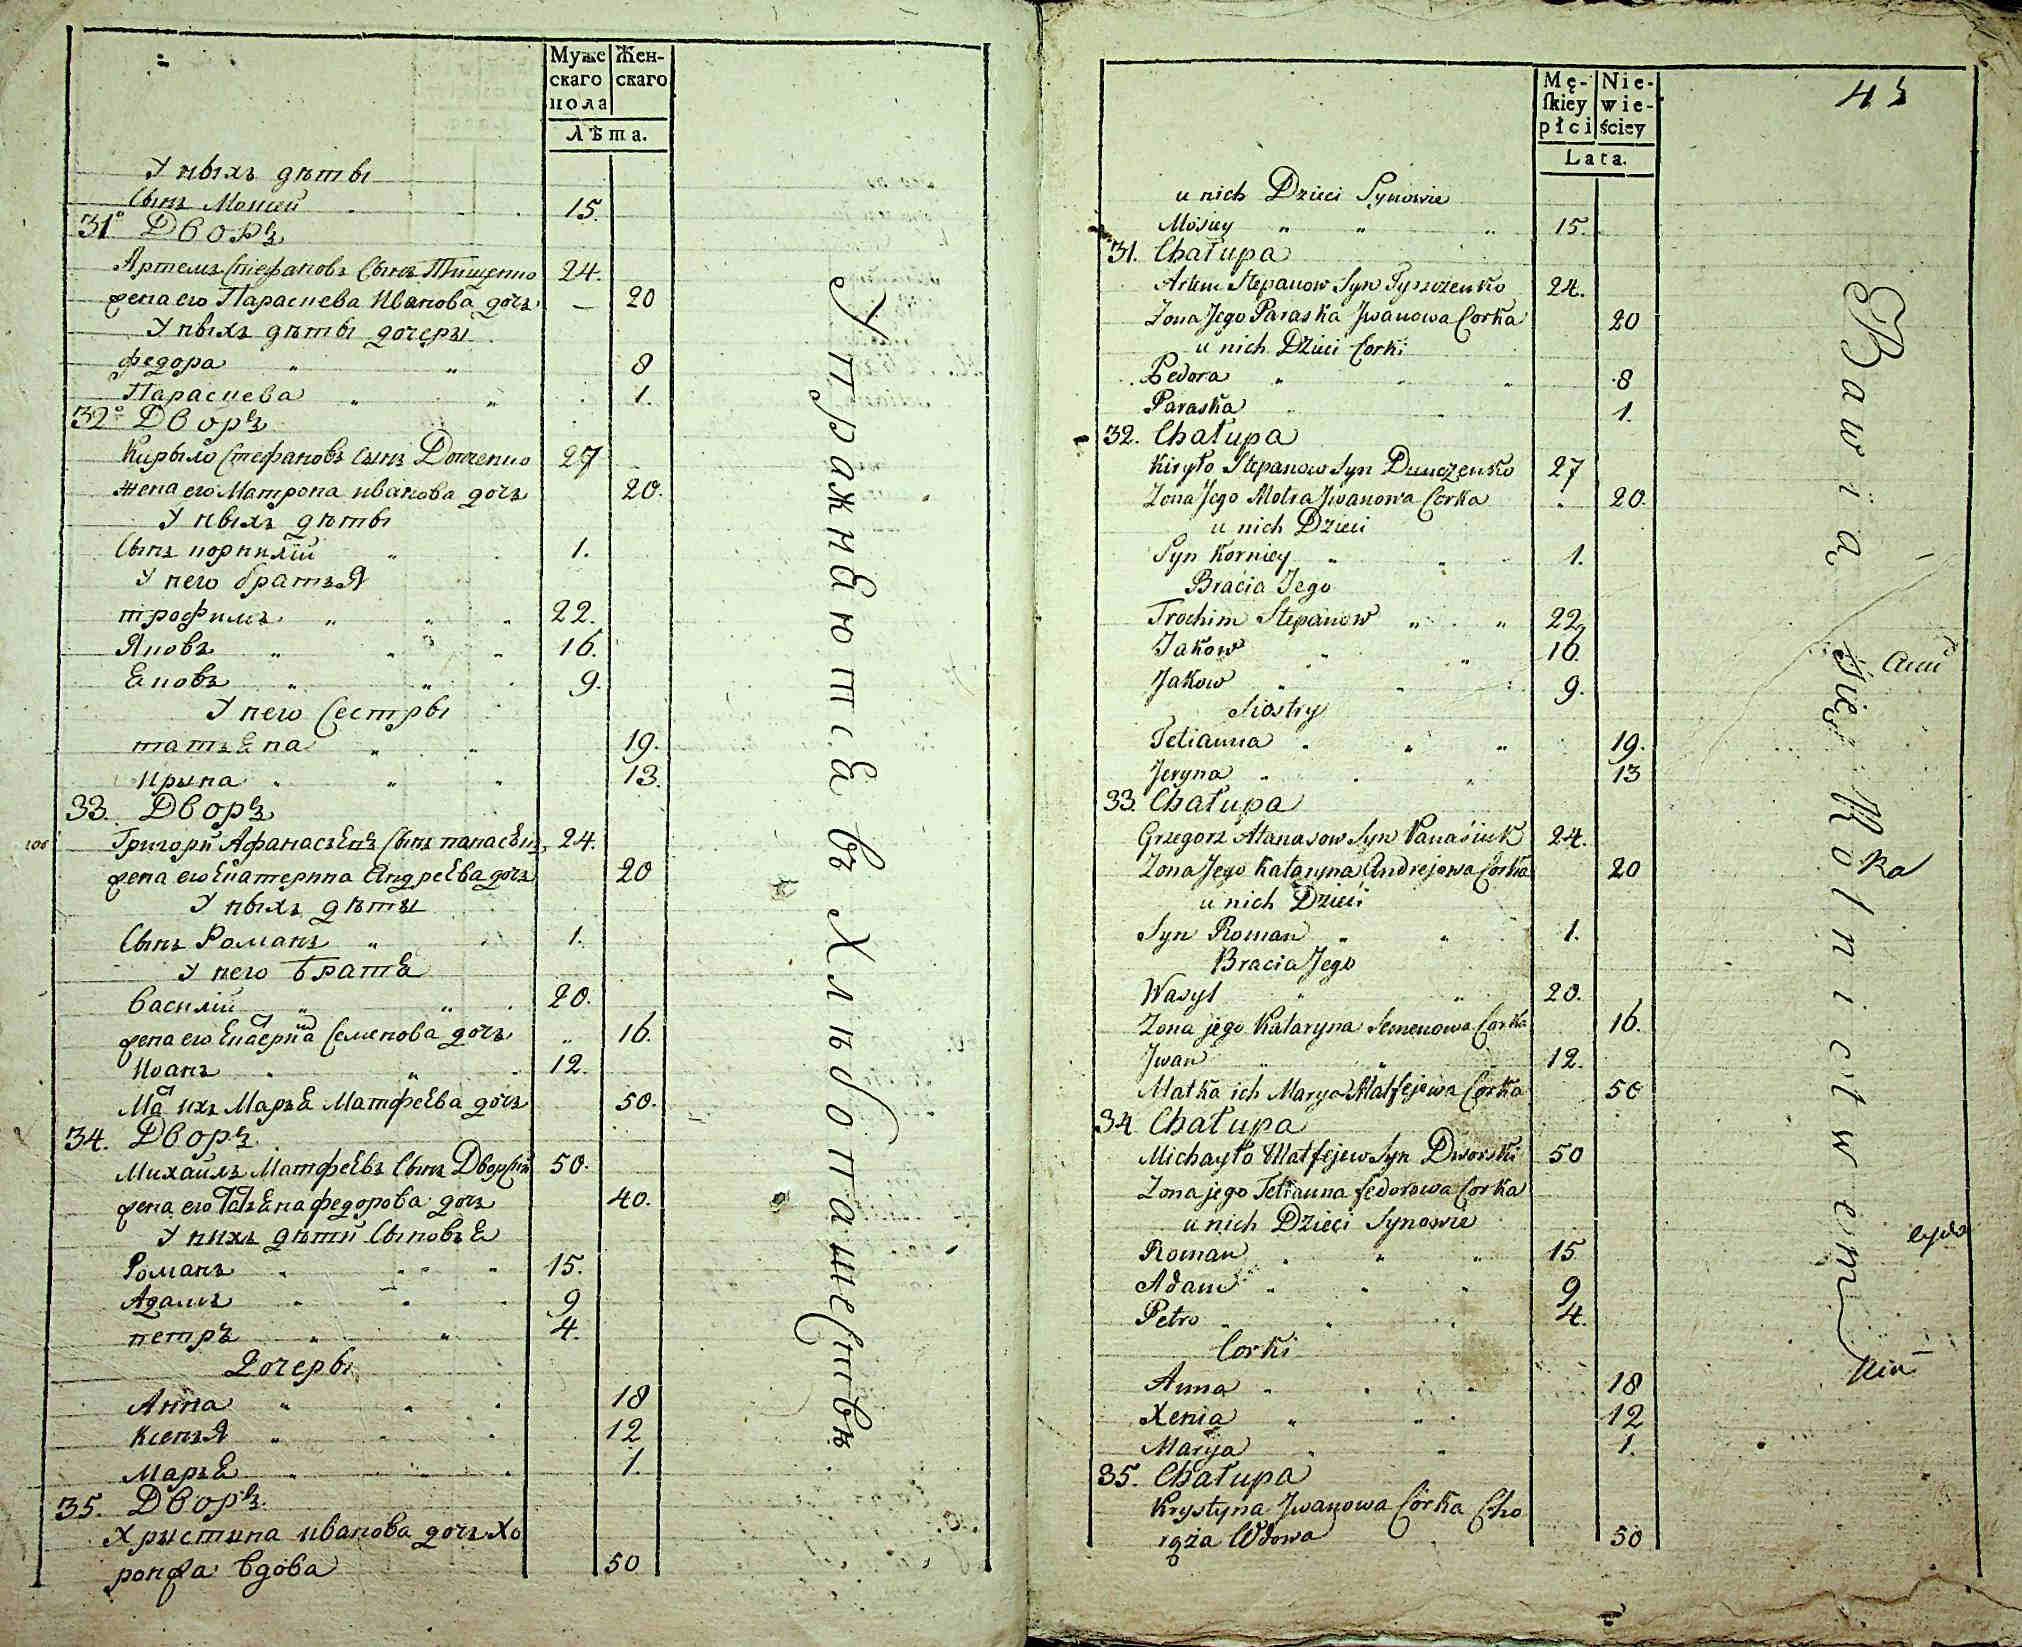 Муже
скаго
пола
Жен-
скаго
Лѣта.
У ныхъ дѣты
Сынъ Мошей 15.
31. Дворъ
Артемъ Стефановъ Сынъ Тищенко 24.
жена его Параскева Иванова дочь — 20
У ныхъ дѣты дочеры
Федора 8
Параскева 1.
32. Дворъ
Кирыло Стефановъ Сынъ 27
жена его Матрона иванова дочь 20.
У ныхъ дѣты
Сынъ корнилій 1.
У него братья
трофимъ 22.
Яковъ 16.
Яковъ 9.
У него Сестры
татьяна 19.
ирына 13.
33. Дворъ
Григорй Афанасьевъ Сынъ панасюкъ 24.
жена его Екатерина Андреева дочь 20
У ныхъ дѣты
Сынъ Романъ 1.
У него братя
Василій 20.
жена его Екатерина Семенова дочь 16.
Иванъ 12.
Мать ихъ Марья Матфеева дочь 50.
34. Дворъ
Михаилъ Матфеевъ Сынъ Дворскій 50.
жена его Татьяна федорова дочь 40.
У нихъ дѣти Сыновья
Романъ 15.
Адамъ 9
петръ 4.
Дочеры
Анна 18
Ксенья 12
Марья 1.
35. Дворъ
Христина иванова дочь Хо
ронжа вдова 50
Упражняются въ Хлѣбопашествѣ.
Mę-
skiey
płci
Nie-
wie-
ściey
Lata.
45
u nich Dzieci Synowie
Mosiey 15.
31. Chałupa
Artem Stepanow Syn Tyszczenko 24.
Zona Jego Paraska Jwanowa Corka 20
u nich Dzieci Corki
Fedora 8
Paraska 1.
32. Chałupa
Kiryło Stepanow Syn 27
Zona Jego Motra Jwanowa Corka 20.
u nich Dzieci
Syn Korniey 1.
Bracia Jego
Trochim Stepanow 22
Jakow 16.
Jakow 9.
Siostry
Tetianna 19.
Jeryna 13
33. Chałupa
Grzegorz Atanasow Syn Panasiuk 24.
Zona Jego Kataryna Andrejowa Corka 20
u nich Dzieci
Syn Roman 1.
Bracia Jego
Wasyl 20.
Zona jego Kataryna Semenowa Corka 16.
Jwan 12.
Matka ich Marya Matfejowa Corka 50
34. Chałupa
Michayło Matfejew Syn Dworski 50
Zona jego Tetianna fedorowa Corka
u nich Dzieci Synowie
Roman 15
Adam 9
Petro 4.
Corki
Anna 18
Xenia 12
Marya 1.
35. Chałupa
Krystyna Jwanowa Córka Cho
rąża Wdowa 50
Bawią się Rolnictwem
ka